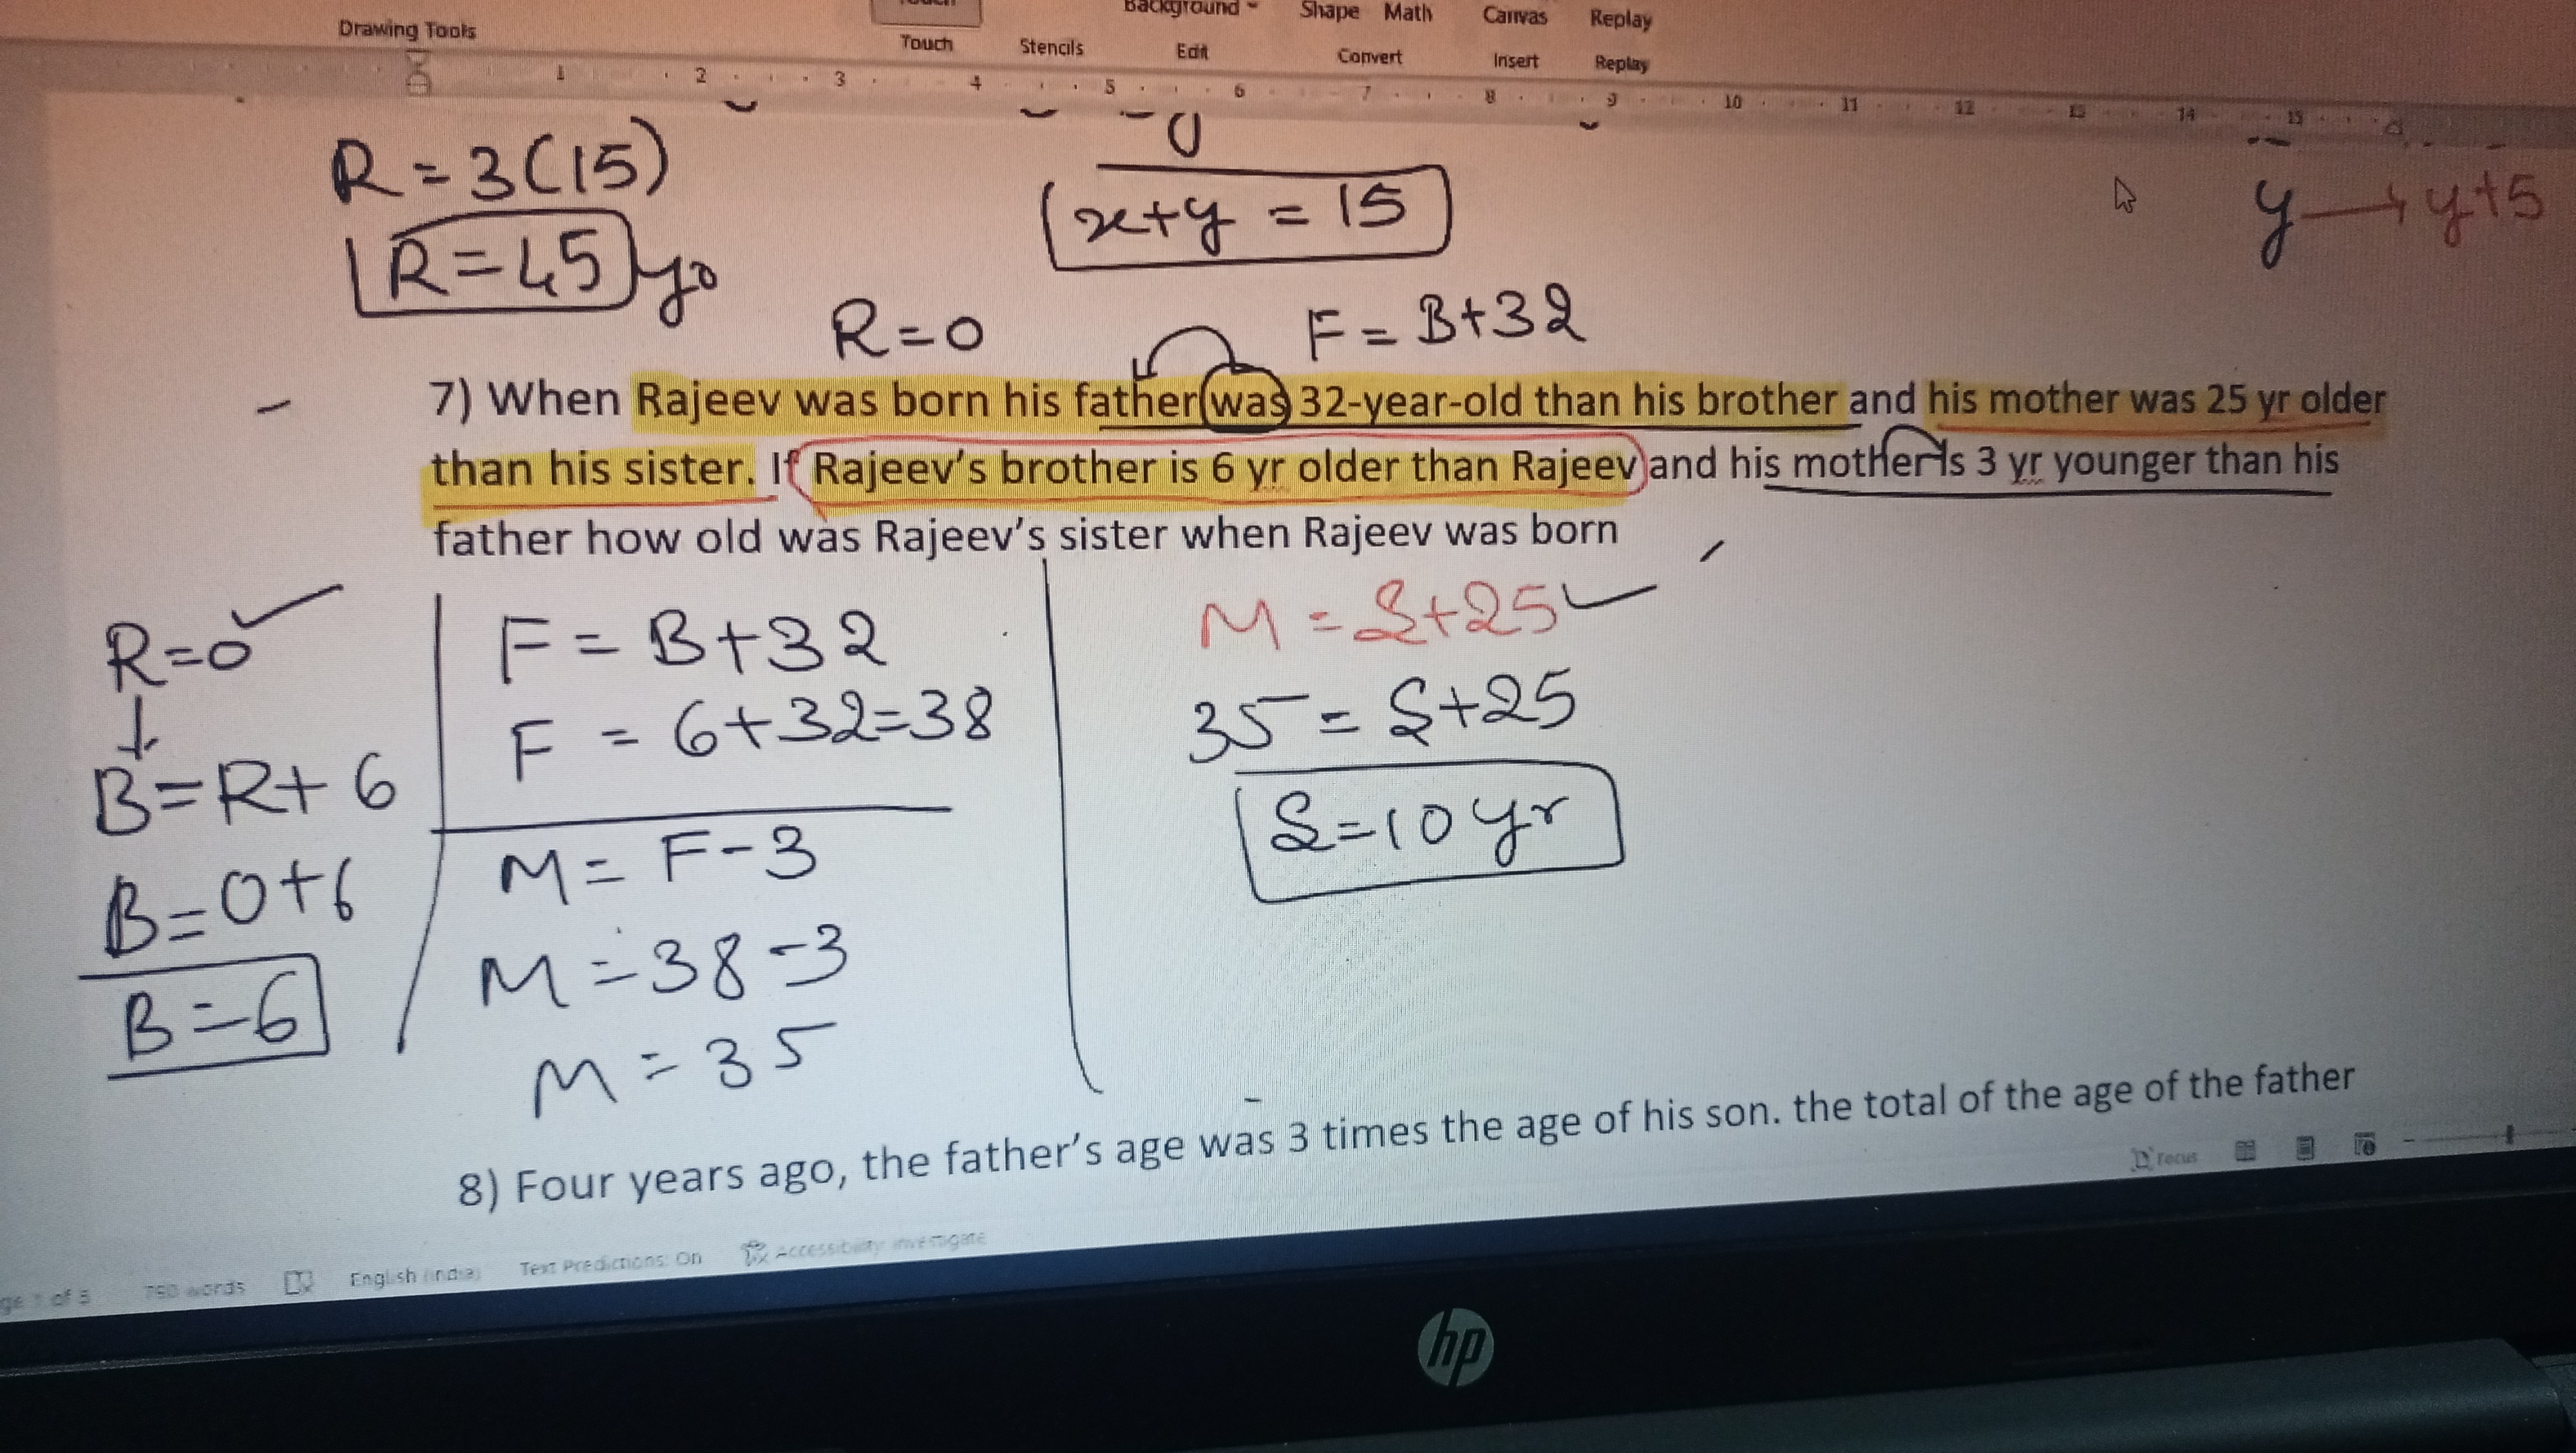 Drawing Tools
Touch
Stencils
Edit
Background
Shape
Convert
Math
Canvas
Insert
Replay
Replay
1 2 3 4 5 6 7 8 9 10 11 12 13 14 15
R = 3(15)
R = 45 yr
x+y = 15
y → y+5
R = 0
F = B+32
7) When Rajeev was born his father was 32-year-old than his brother and his mother was 25 yr older
than his sister. If Rajeev's brother is 6 yr older than Rajeev and his mother is 3 yr younger than his
father how old was Rajeev's sister when Rajeev was born
R = 0
B = R + 6
B = 0 + 6
B = 6
F = B + 32
F = 6 + 32 = 38
M = F - 3
M = 38 - 3
M = 35
M = S + 25
35 = S + 25
S = 10 yr
8) Four years ago, the father's age was 3 times the age of his son. the total of the age of the father
ge 1 of 5
790 words
English (India)
Text Predictions: On
Accessibility: Investigate
Focus
hp